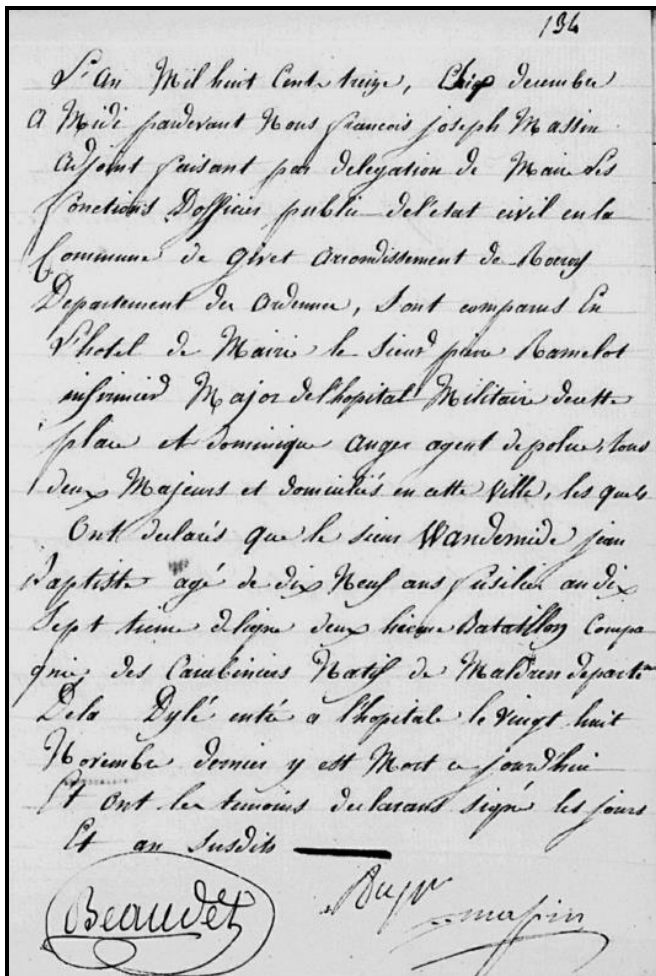 134
L'an Mil huit Cent treize, Le dix decembre
A Midi pardevant Nous francois joseph Massin
adjoint faisant par delegation de Maire Les
fonctions D'officier public del'etat civil en la
Commune de Givet arrondissement de Rocroy
Departement des Ardennes, Sont comparus En
L'hotel de Mairie le Sieur pierre Ramelot
infirmier Major del'hopital Militaire de cette
place et dominique anger agent de police, tous
deux Majeurs et domiciliés en cette Ville, les quels
Ont declarés que le sieur Wandermide jean
Baptiste agé de dix Neuf ans fusilier au dix
Sept tieme deligne deux hieme Batatillon Compa
gnie des Carabiniers Natif de Maldren departem
Dela Dylé entré a l'hopitale le vingt huit
Novembre dernier y est Mort ce jourd'hui
Et ont les temoins declarans signé les jours
Et an susdits
Beaudet
massin